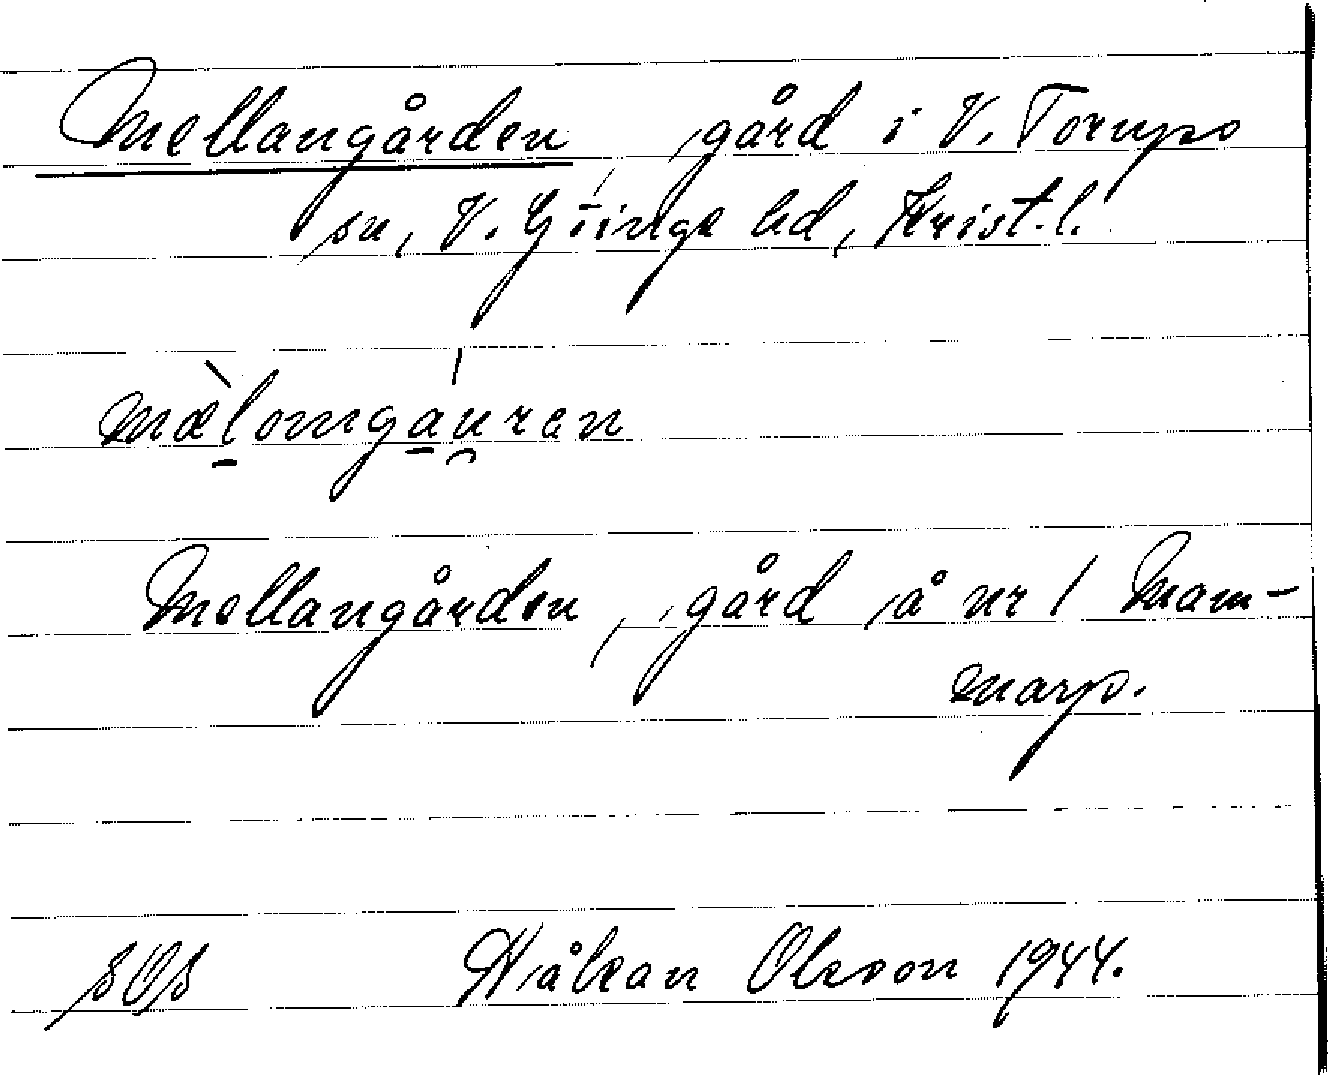 Mellangården, gård i V. Torups
sn, V. Göinge hd, Krist. l.
mæ̀l̠omga̠u̯ren
Mellangården, gård å nr 1 Mam-
marp.
SOS Håkan Olsson 1944.